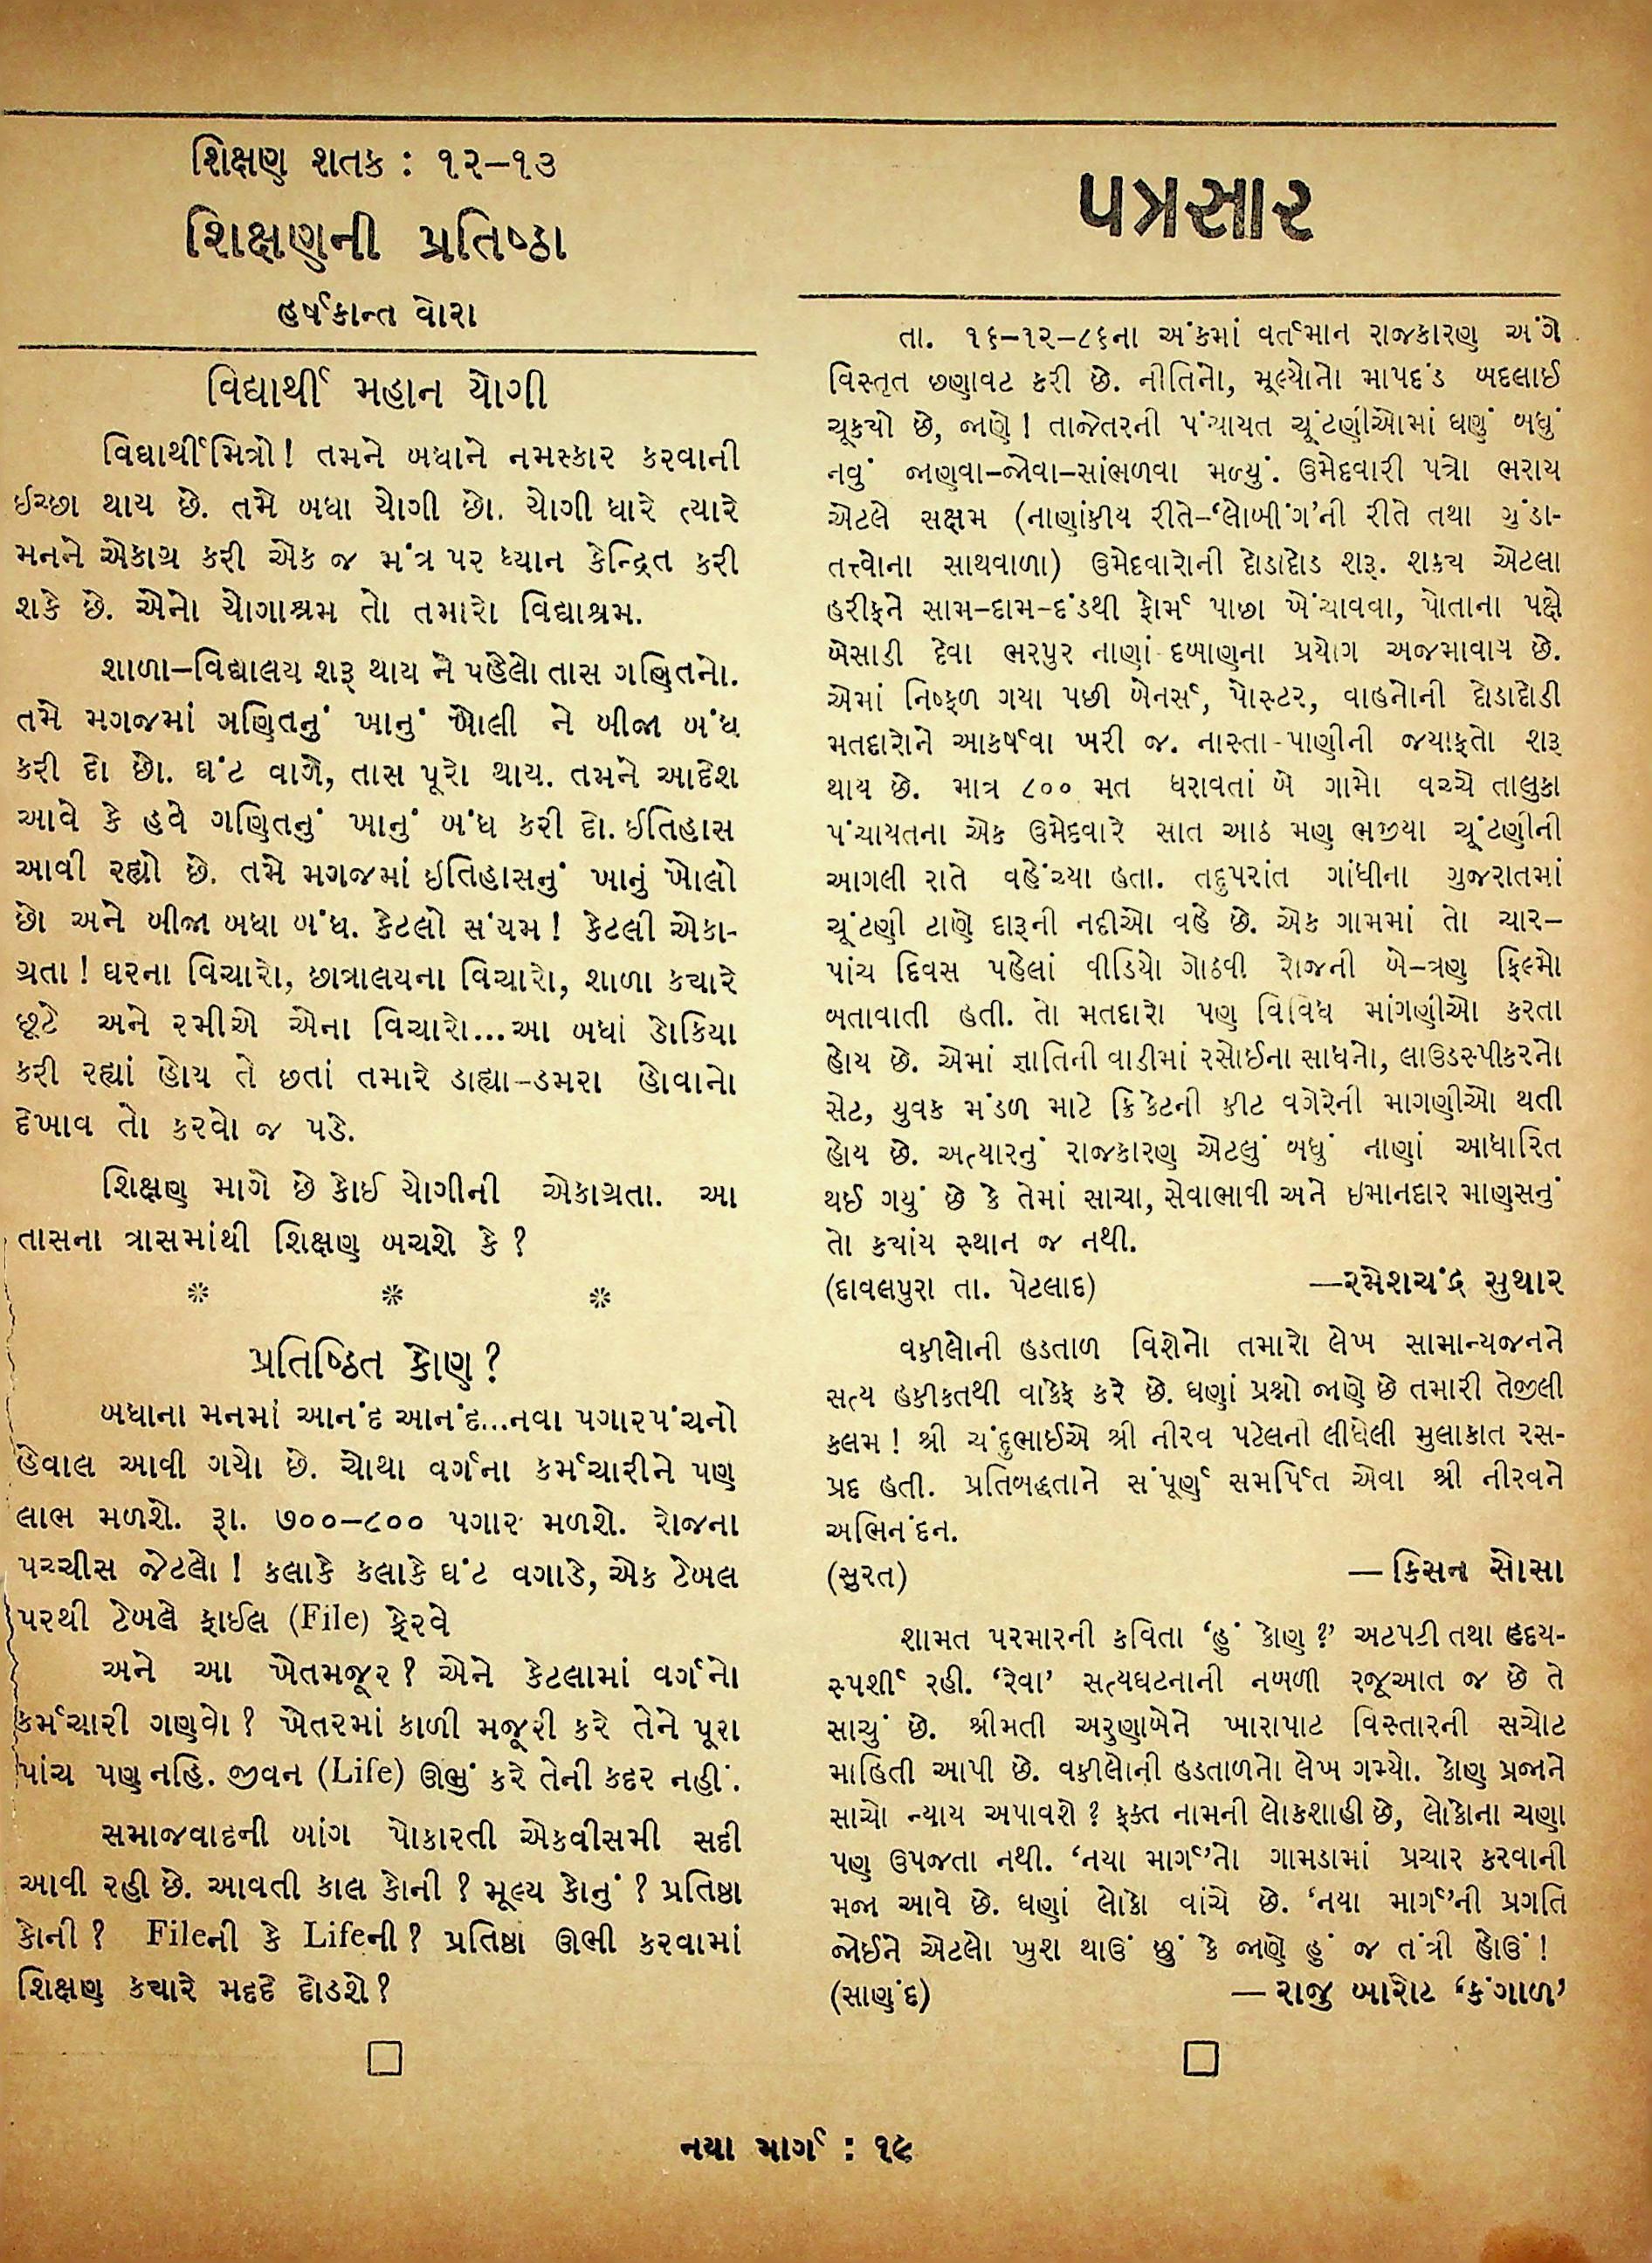 શિક્ષણ શતક : ૧૨–૧૩
શિક્ષણની પ્રતિષ્ઠા
હર્ષકાન્ત વોરા
વિદ્યાર્થી મહાન યોગી
વિદ્યાર્થીમિત્રો! તમને બધાને નમસ્કાર કરવાની
ઈચ્છા થાય છે. તમે બધા યોગી છો. યોગી ધારે ત્યારે
મનને એકાગ્ર કરી એક જ મંત્ર પર ધ્યાન કેન્દ્રિત કરી
શકે છે. એનો યોગાશ્રમ તો તમારો વિદ્યાશ્રમ.
શાળા–વિદ્યાલય શરૂ થાય ને પહેલો તાસ ગણિતનો.
તમે મગજમાં ગણિતનું ખાનું ખોલી ને બીજા બંધ
કરી દો છો. ઘંટ વાગે, તાસ પૂરો થાય. તમને આદેશ
આવે કે હવે ગણિતનું ખાનું બંધ કરી દો. ઈતિહાસ
આવી રહ્યો છે. તમે મગજમાં ઈતિહાસનું ખાનું ખોલો
છો અને બીજા બધા બંધ. કેટલો સંયમ! કેટલી એકા-
ગ્રતા! ઘરના વિચારો, છાત્રાલયના વિચારો, શાળા કયારે
છૂટે અને રમીએ એના વિચારો...આ બધાં ડોકિયા
કરી રહ્યાં હોય તે છતાં તમારે ડાહ્યા-ડમરા હોવાનો
દેખાવ તો કરવો જ પડે.
શિક્ષણ માગે છે કોઈ યોગીની એકાગ્રતા. આ
તાસના ત્રાસમાંથી શિક્ષણ બચશે કે ?
❊ ❊ ❊
પ્રતિષ્ઠિત કોણ?
બધાના મનમાં આનંદ આનંદ...નવા પગારપંચનો
હેવાલ આવી ગયો છે. ચોથા વર્ગના કર્મચારીને પણ
લાભ મળશે. રૂા. ૭૦૦–૮૦૦ પગાર મળશે. રોજના
પચ્ચીસ જેટલો! કલાકે કલાકે ઘંટ વગાડે, એક ટેબલ
પરથી ટેબલે ફાઈલ (File) ફેરવે
અને આ ખેતમજૂર? એને કેટલામાં વર્ગનો
કર્મચારી ગણવો? ખેતરમાં કાળી મજૂરી કરે તેને પૂરા
પાંચ પણ નહિ. જીવન (Life) ઊભું કરે તેની કદર નહીં.
સમાજવાદની બાંગ પોકારતી એકવીસમી સદી
આવી રહી છે. આવતી કાલ કોની? મૂલ્ય કોનું? પ્રતિષ્ઠા
કોની? Fileની કે Lifeની? પ્રતિષ્ઠા ઊભી કરવામાં
શિક્ષણ કયારે મદદે દોડશે?
પત્રસાર
તા. ૧૬–૧૨–૮૬ના અંકમાં વર્તમાન રાજકારણ અંગે
વિસ્તૃત છણાવટ કરી છે. નીતિનો, મૂલ્યોનો માપદંડ બદલાઈ
ચૂકયો છે, જાણે! તાજેતરની પંચાયત ચૂંટણીઓમાં ઘણું બધું
નવું જાણવા–જોવા–સાંભળવા મળ્યું. ઉમેદવારી પત્રો ભરાય
એટલે સક્ષમ (નાણાંકીય રીતે–‘લોબીંગ’ની રીતે તથા ગુંડા-
તત્ત્વોના સાથવાળા) ઉમેદવારોની દોડાદોડ શરૂ. શકય એટલા
હરીફને સામ-દામ-દંડથી ફોર્મ પાછા ખેંચાવવા, પોતાના પક્ષે
બેસાડી દેવા ભરપુર નાણાં દબાણના પ્રયોગ અજમાવાય છે.
એમાં નિષ્ફળ ગયા પછી બેનર્સ, પોસ્ટર, વાહનોની દોડાદોડી
મતદારોને આકર્ષવા ખરી જ. નાસ્તા-પાણીની જયાફતો શરૂ
થાય છે. માત્ર ૮૦૦ મત ધરાવતાં બે ગામો વચ્ચે તાલુકા
પંચાયતના એક ઉમેદવારે સાત આઠ મણ ભજીયા ચૂંટણીની
આગલી રાતે વહેંચ્યા હતા. તદ્દુપરાંત ગાંધીના ગુજરાતમાં
ચૂંટણી ટાણે દારૂની નદીઓ વહે છે. એક ગામમાં તો ચાર–
પાંચ દિવસ પહેલાં વીડિયો ગોઠવી રોજની બે–ત્રણ ફિલ્મો
બતાવાતી હતી. તો મતદારો પણ વિવિધ માંગણીઓ કરતા
હોય છે. એમાં જ્ઞાતિની વાડીમાં રસોઈના સાધનો, લાઉડસ્પીકરનો
સેટ, યુવક મંડળ માટે ક્રિકેટની કીટ વગેરેની માગણીઓ થતી
હોય છે. અત્યારનું રાજકારણ એટલું બધું નાણાં આધારિત
થઈ ગયું છે કે તેમાં સાચા, સેવાભાવી અને ઇમાનદાર માણસનું
તો કયાંય સ્થાન જ નથી.
(દાવલપુરા તા. પેટલાદ) —રમેશચંદ્ર સુથાર
વકીલોની હડતાળ વિશેનો તમારો લેખ સામાન્યજનને
સત્ય હકીકતથી વાકેફ કરે છે. ઘણાં પ્રશ્નો જાણે છે તમારી તેજીલી
કલમ! શ્રી ચંદુભાઈએ શ્રી નીરવ પટેલની લીધેલી મુલાકાત રસ-
પ્રદ હતી. પ્રતિબદ્ધતાને સંપૂર્ણ સમર્પિત એવા શ્રી નીરવને
અભિનંદન.
(સુરત) — કિસન સોસા
શામત પરમારની કવિતા ‘હું કોણ?’ અટપટી તથા હૃદય-
સ્પર્શી રહી. ‘રેવા’ સત્યઘટનાની નબળી રજૂઆત જ છે તે
સાચું છે. શ્રીમતી અરુણાબેને ખારાપાટ વિસ્તારની સચોટ
માહિતી આપી છે. વકીલોની હડતાળનો લેખ ગમ્યો. કોણ પ્રજાને
સાચો ન્યાય અપાવશે? ફક્ત નામની લોકશાહી છે, લોકોના ચણા
પણ ઉપજતા નથી. ‘નયા માર્ગ’નો ગામડામાં પ્રચાર કરવાની
મજા આવે છે. ઘણાં લોકો વાંચે છે. ‘નયા માર્ગ’ની પ્રગતિ
જોઈને એટલો ખુશ થાઉં છું કે જાણે હું જ તંત્રી હોઉં!
(સાણંદ) — રાજુ બારોટ ‘કંગાળ’
નયા માર્ગ : ૧૯